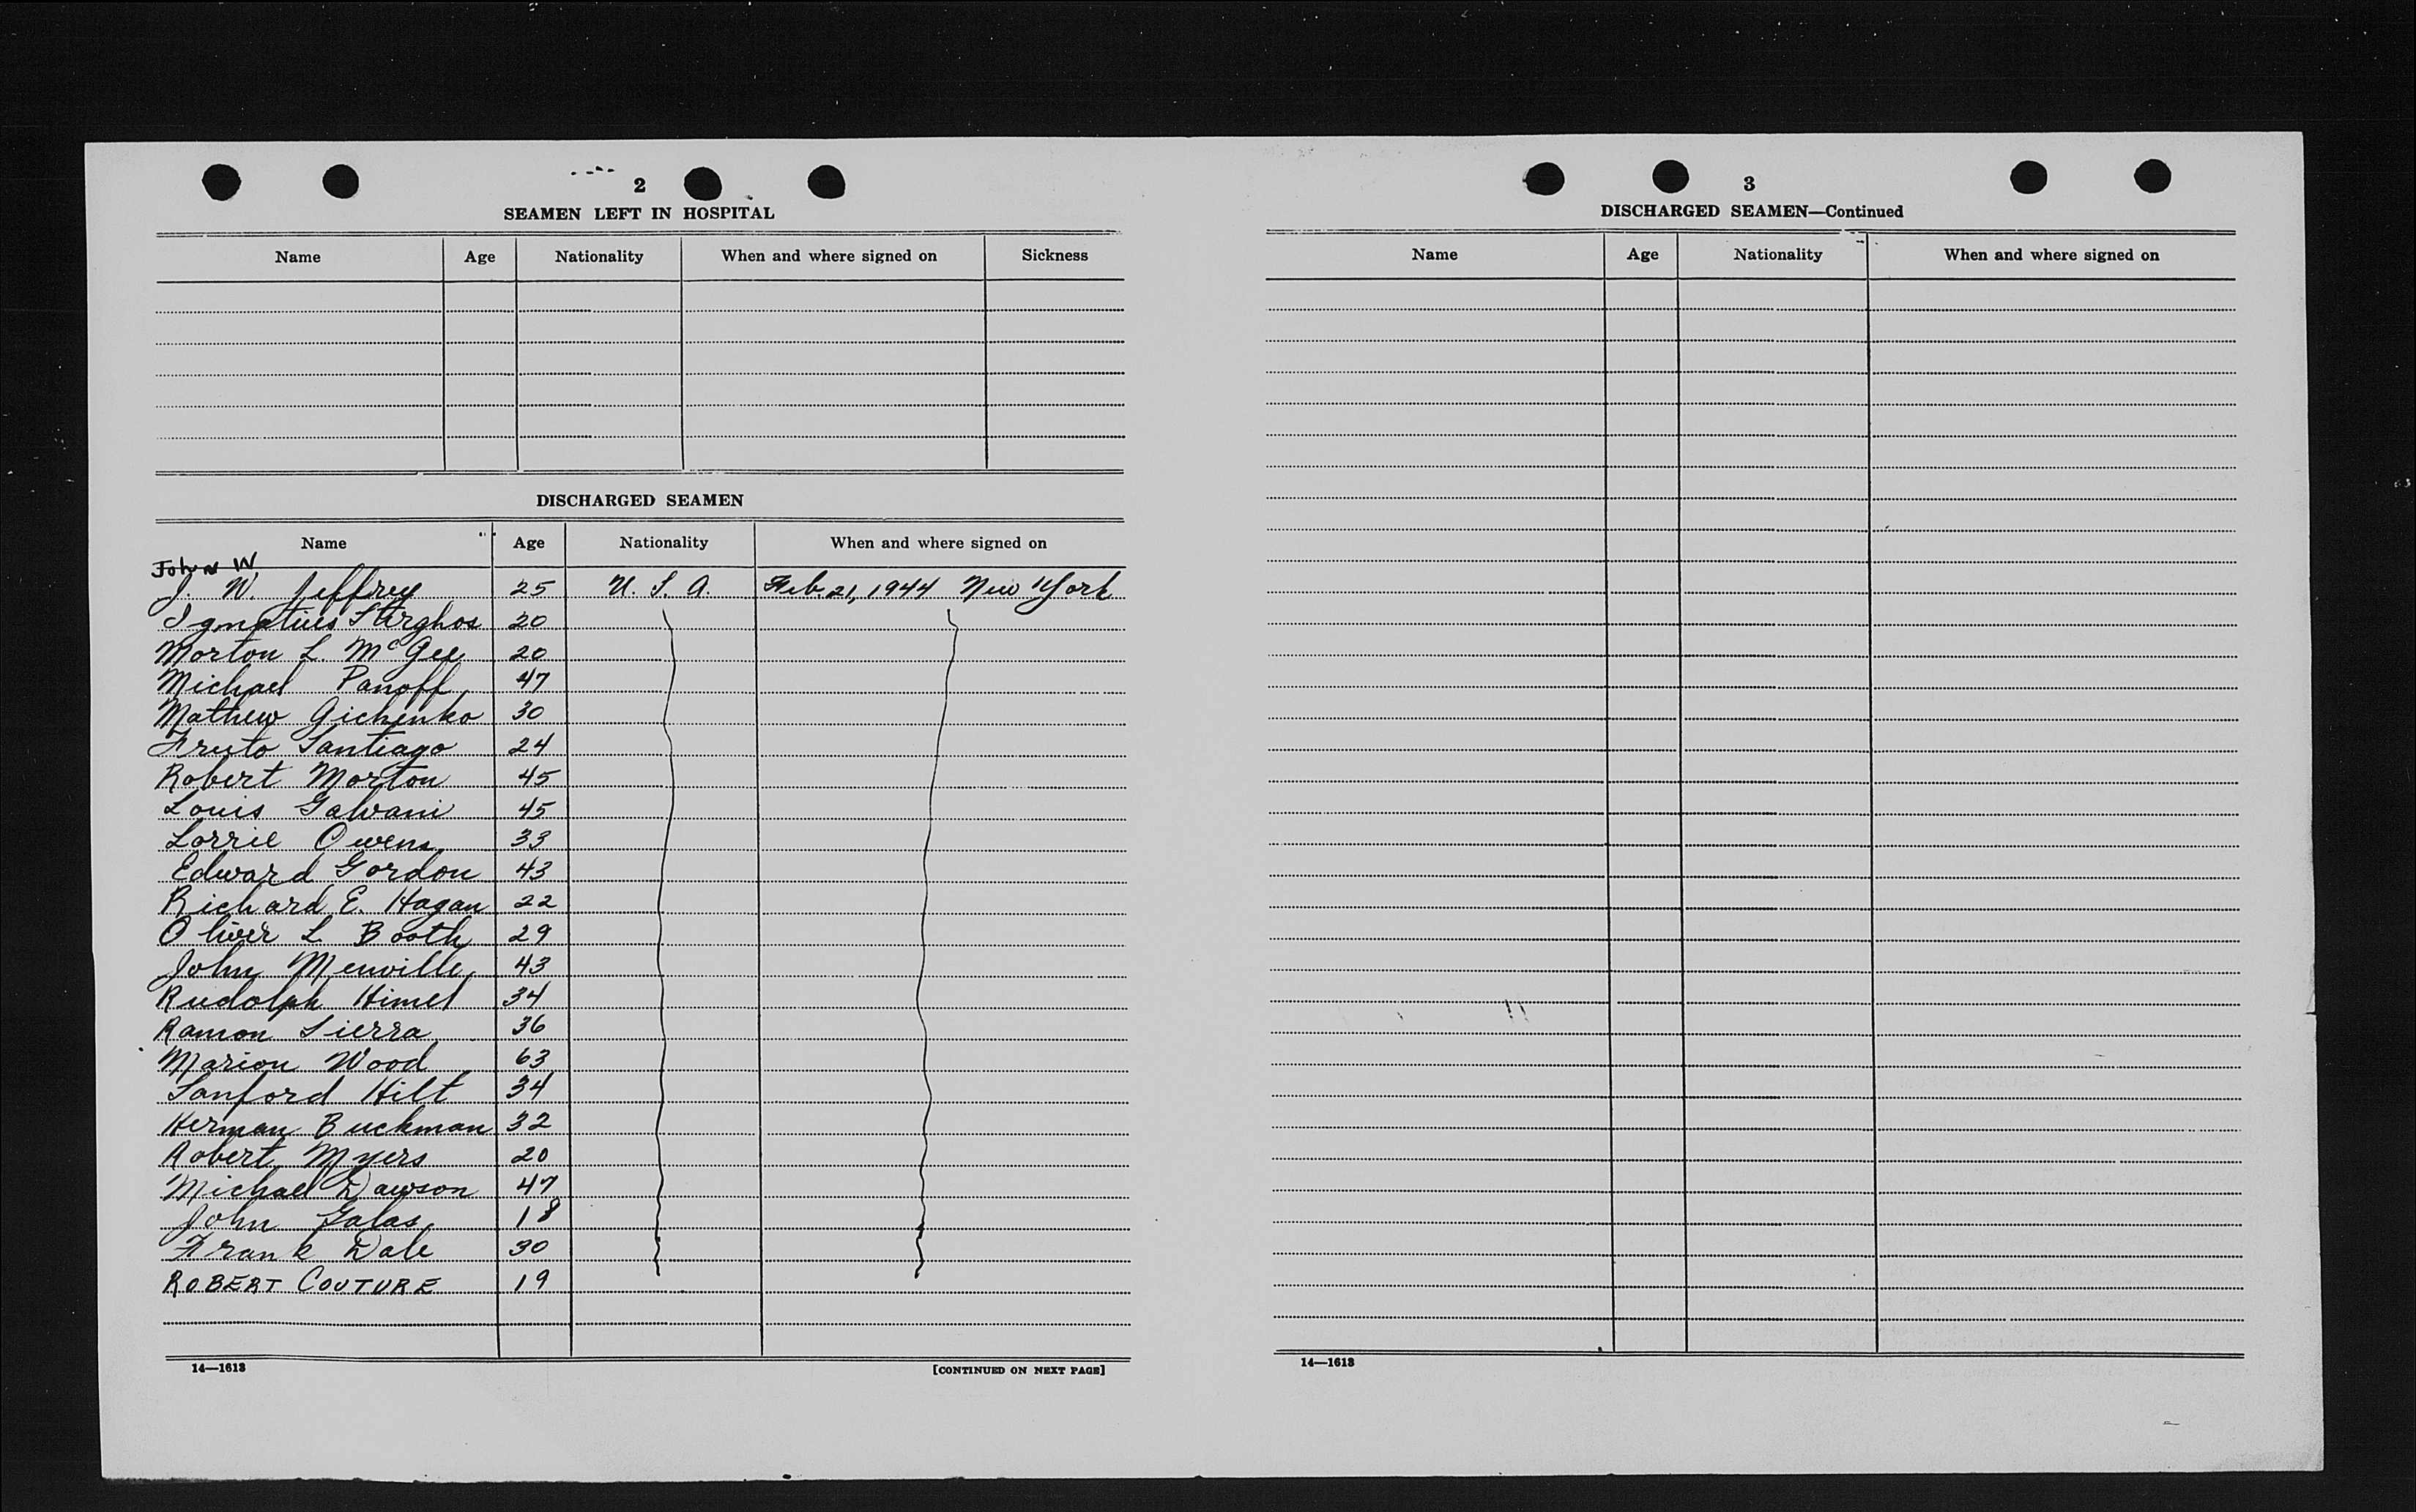 2
SEAMEN LEFT IN HOSPITAL
Name Age Nationality When and where signed on Sickness
DISCHARGED SEAMEN
Name Age Nationality When and where signed on
John W
J. W. Jeffrey 25 U. S. A. Feb. 21, 1944 New York
Ignatius Starghos 20
Morton L. McGee 20
Michael Panoff 47
Mathew Gichenko 30
Fruto Santiago 24
Robert Morton 45
Louis Galvani 45
Lorrie Owens 33
Edward Gordon 43
Richard E. Hagan 22
Oliver L. Booth 29
John Menville 43
Rudolph Himel 34
Ramon Sierra 36
Marion Wood 63
Sanford Hilt 34
Herman Buckman 32
Robert Myers 20
Michael Dawson 47
John Galas 18
Frank Dale 30
ROBERT COUTURE 19
14—1613 [CONTINUED ON NEXT PAGE]
3
DISCHARGED SEAMEN—Continued
Name Age Nationality When and where signed on
14—1613